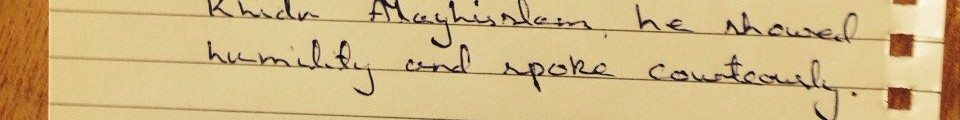 Khidr Alayhisslam, he showed
humility and spoke courteously.